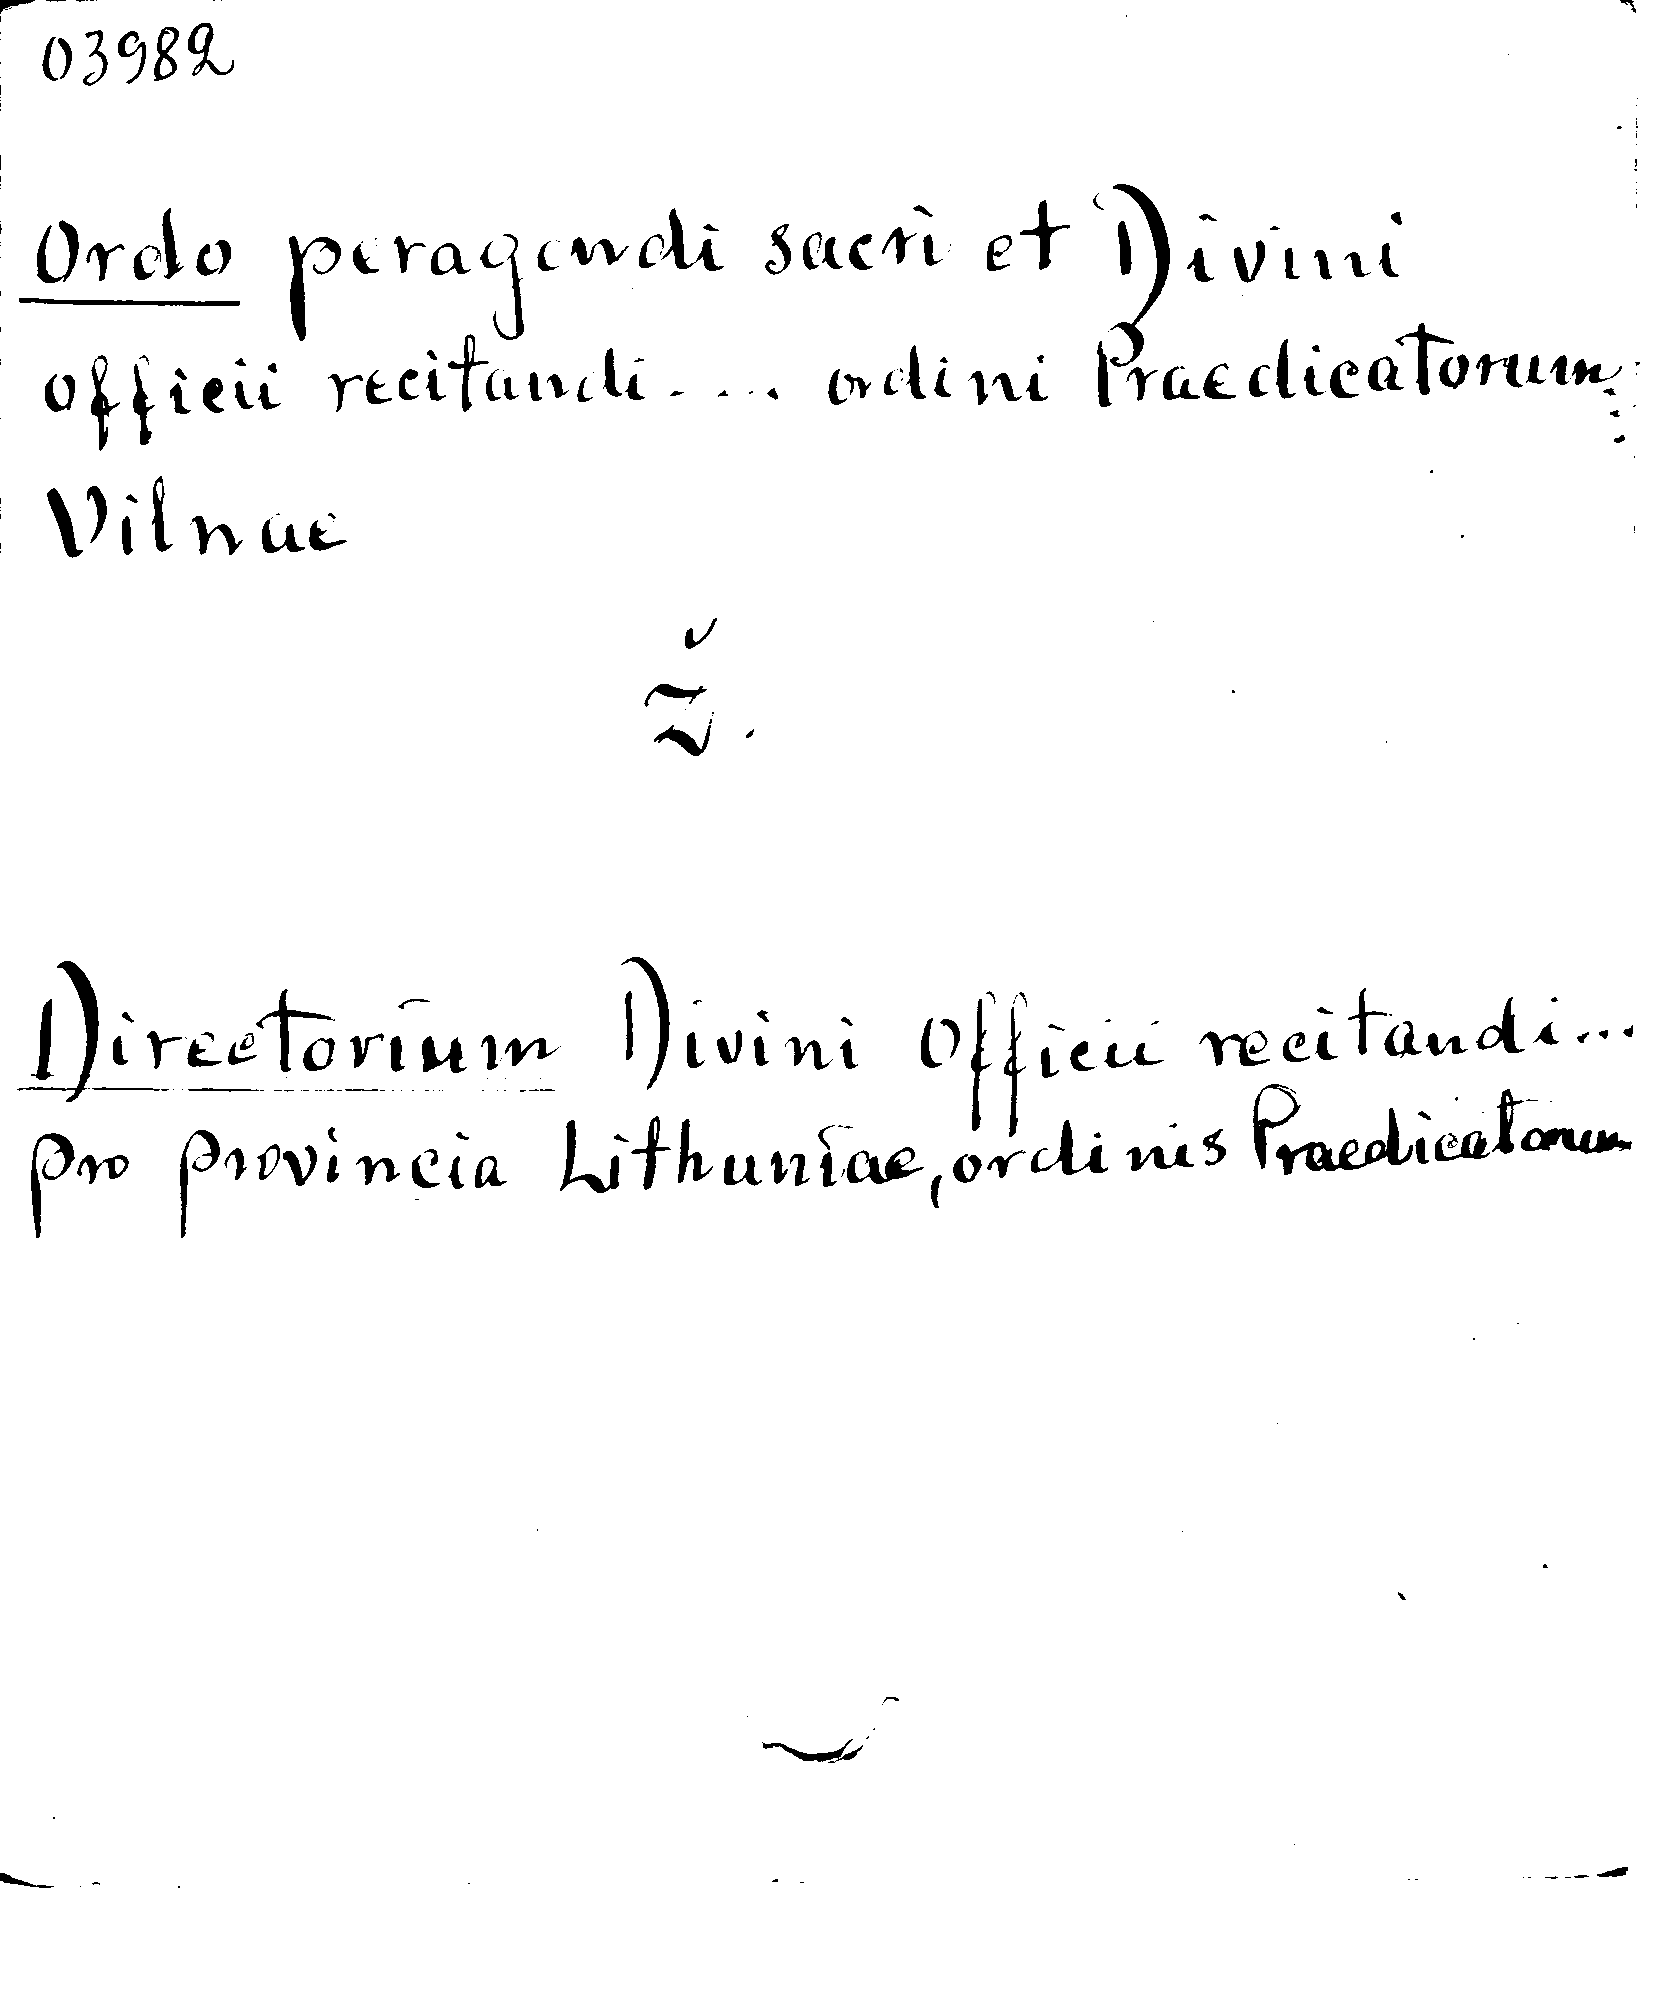 03982
Ordo peragendi sacri et Divini
officii recitandi.... ordini Praedicatorum...
Vilnae
ž.
Directorium Divini Officii recitandi...
pro provincia Lithuniae, ordinis Praedicatorum